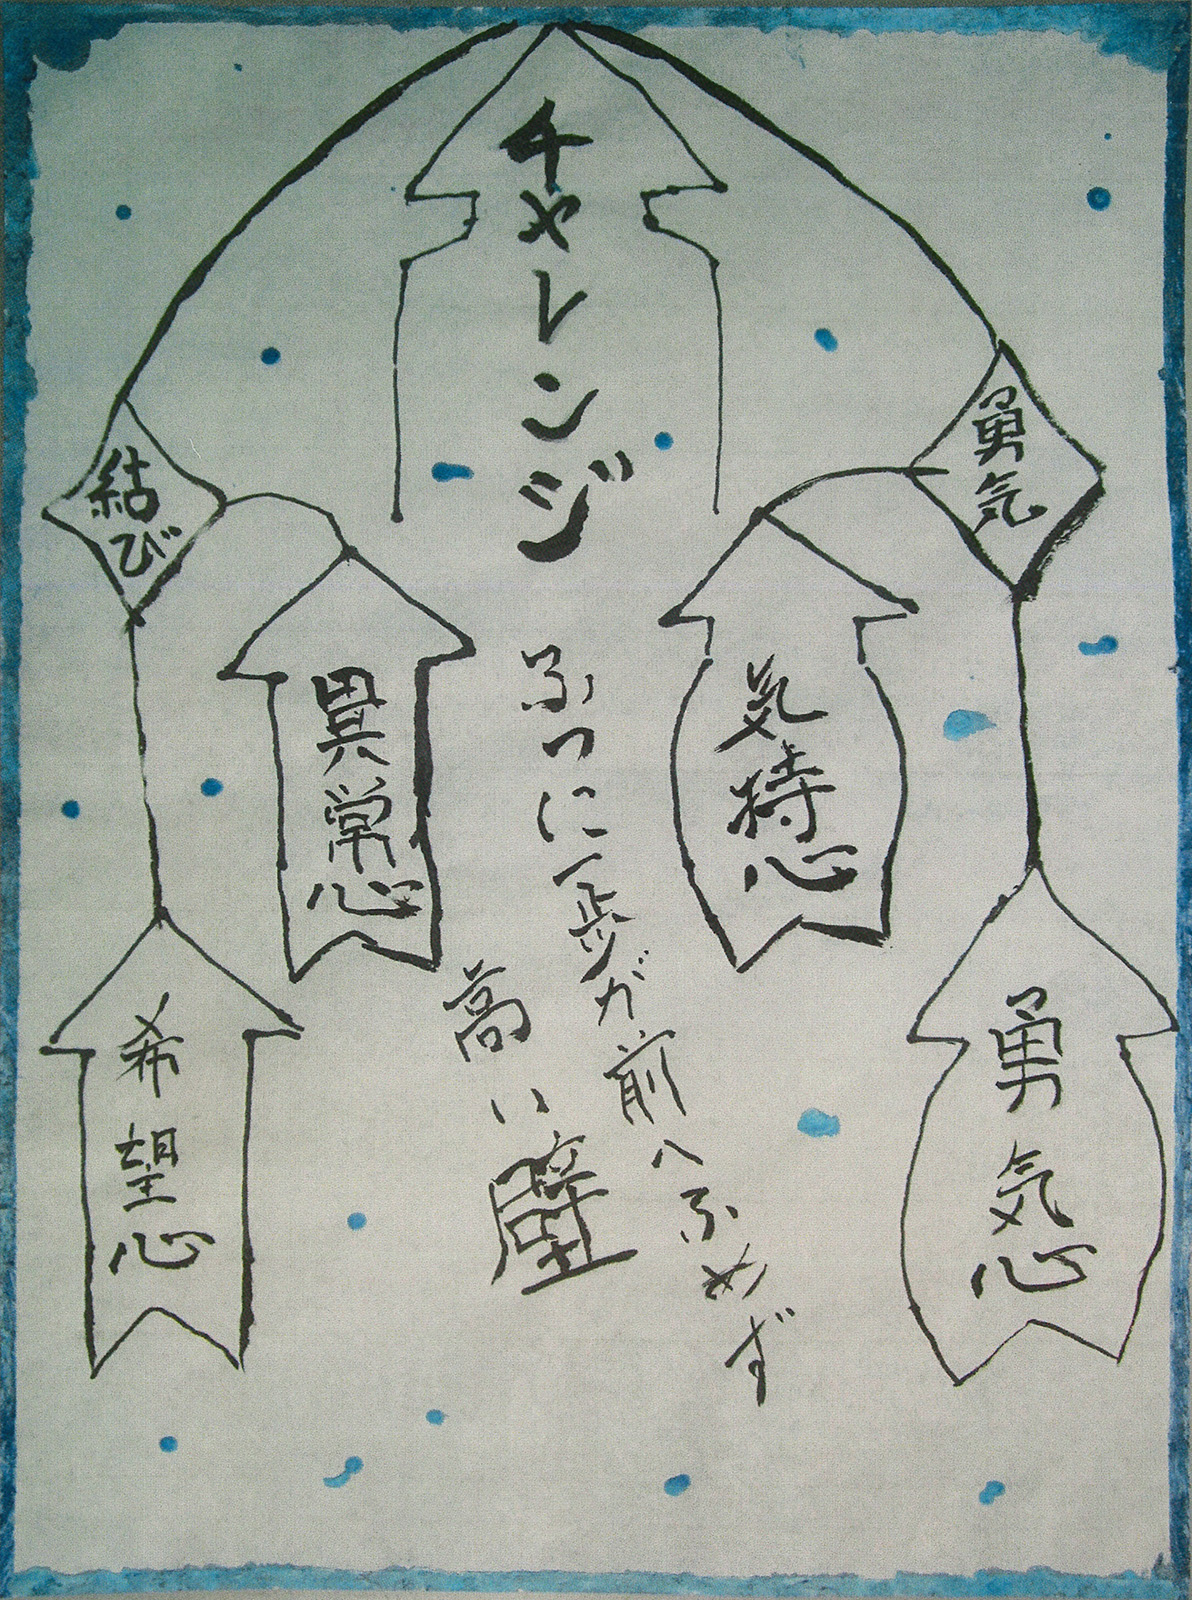 チャレンジ
勇気
結び
気持心
異常心
ふつに一歩が前へふめず
高い壁
勇気心
希望心